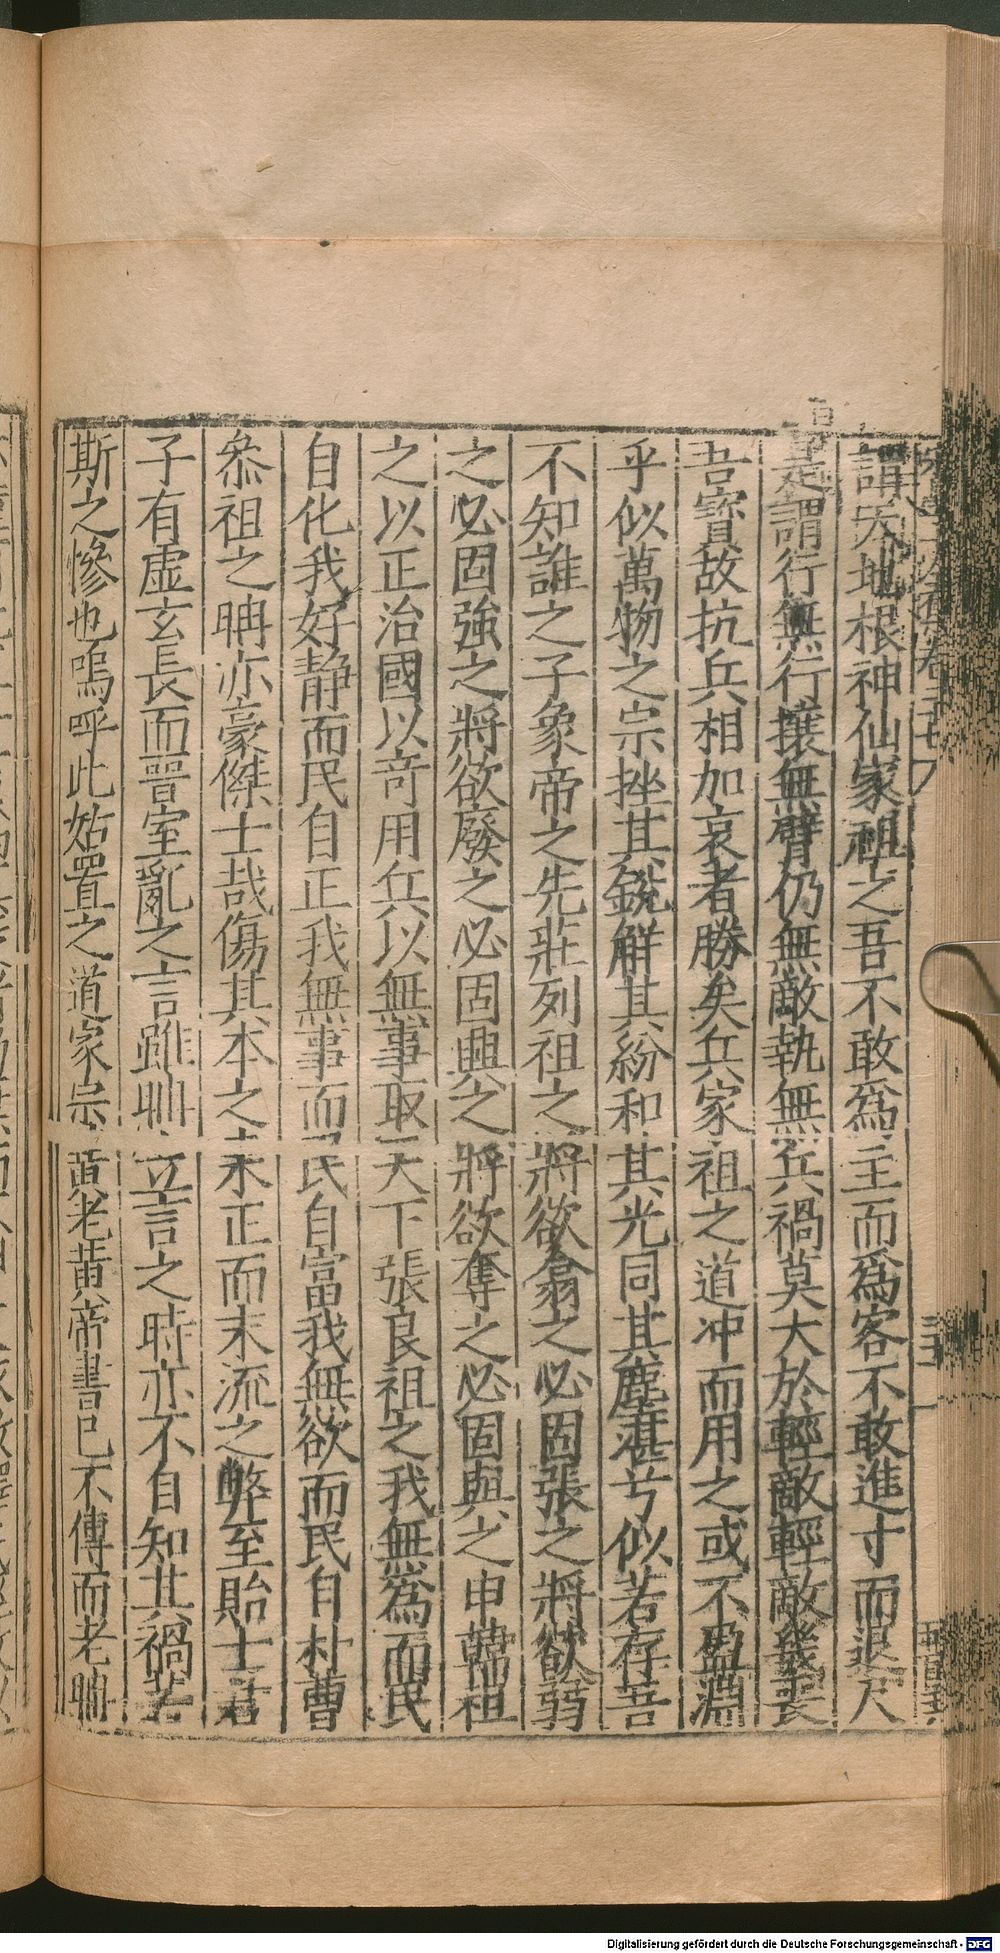 謂天地根神仙家祖之吾不敢為主而為客不敢進寸而退尺
是謂行無行攘無臂仍無敵執無兵禍莫大於輕敵輕敵幾喪
吾寶故抗兵相加哀者勝矣兵家祖之道沖而用之或不盈淵
乎似萬物之宗挫其銳解其紛和其光同其塵湛兮似若存吾
不知誰之子象帝之先莊列祖之將欲翕之必固張之將欲弱
之必固強之將欲廢之必固興之將欲奪之必固與之申韓祖
之以正治國以竒用兵以無事取天下張良祖之我無為而民
自化我好靜而民自正我無事而民自富我無欲而民自朴曹
叅祖之耼亦豪傑士哉傷其本之未正而末流之弊至貽士君
子有虛玄長而晉室亂之言雖耼立言之時亦不自知其禍若
斯之慘也嗚呼此姑置之道家宗黃老黃帝書已不傳而老耼
Digitalisierung gefördert durch die Deutsche Forschungsgemeinschaft - DFG